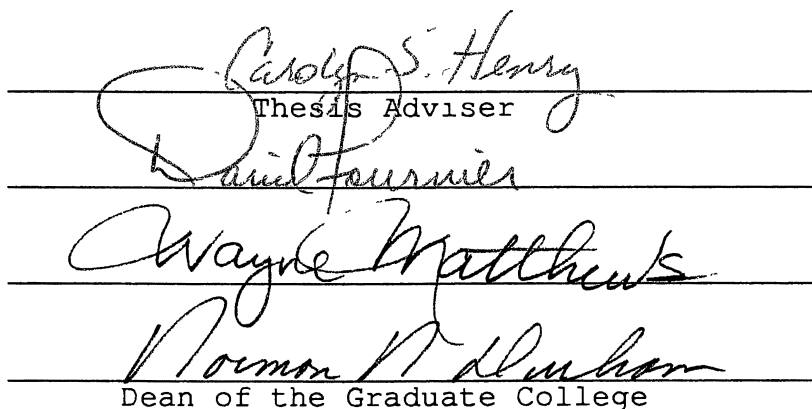 Carolyn S. Henry
Thesis Adviser
David Fournier
Wayne Matthews
Norman N Durham
Dean of the Graduate College